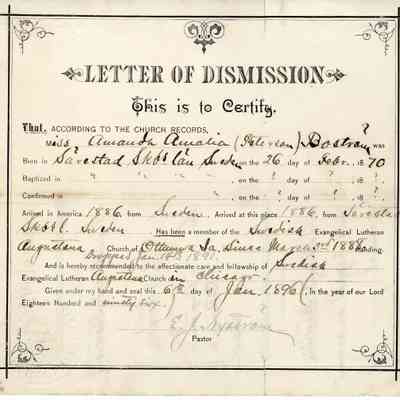 LETTER OF DISMISSION
This is to Certify,
That, ACCORDING TO THE CHURCH RECORDS,
Miss Amanda Amalia (Peterson) Boström was
Born in Säfvestad Skb's län Sweden on the 26 day of Febr. 1870
Baptized in " " " " , on the ? day of ? 18 ?
Confirmed in " " " , on the ? day of ? 18 ?
Arrived in America 1886 from Sweden. Arrived at this place 1886, from
Sweden Has been a member of the Swedish Evangelical Lutheran
Augustana Church of Ottumwa Ia. Since March 2nd 1888 standing.
Dropped Jan 18th 1891.
And is hereby recommended to the affectionate care and fellowship of Swedish
Evangelical Lutheran Augustana Church in Chicago.
Given under my hand and seal this 6th day of Jan. 1896 (In the year of our Lord
Eighteen Hundred and ninety six.
E. J. Nyström
Pastor